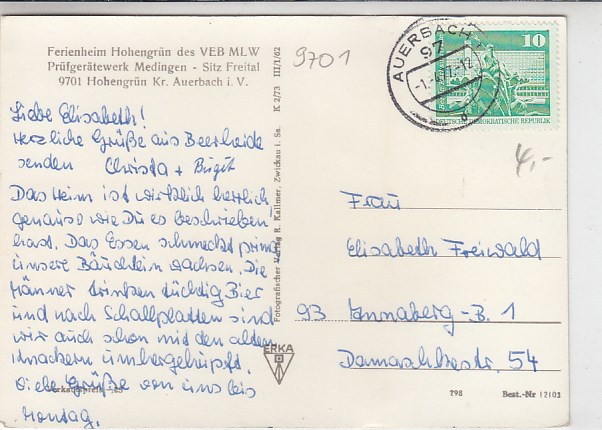 Ferienheim Hohengrün des VEB MLW
Prüfgerätewerk Medingen - Sitz Freital
9701 Hohengrün Kr. Auerbach i. V.
Liebe Elisabeth!
Herzliche Grüße aus Beerheide
senden Christa + Birgit
Das Heim ist wirklich herrlich
genauso wie Du es beschrieben
hast. Das Essen schmeckt prima
unsere Bäuchlein wachsen. Die
Männer trinken tüchtig Bier
und nach Schallplatten sind
wir auch schon mit den alten
Knachern umhergehupft.
Viele Grüße von uns bis
Montag.
Verkaufspreis
Fotografischer Verlag R. Kallmer, Zwickau i. Sa. K 2/73 III/1/62
ERKA
9701
AUERBACH
97
10
DEUTSCHE DEMOKRATISCHE REPUBLIK
4,-
Frau
Elisabeth Freiwald
93 Annaberg-B. 1
Damaschkestr. 54
798 Best.-Nr 12103